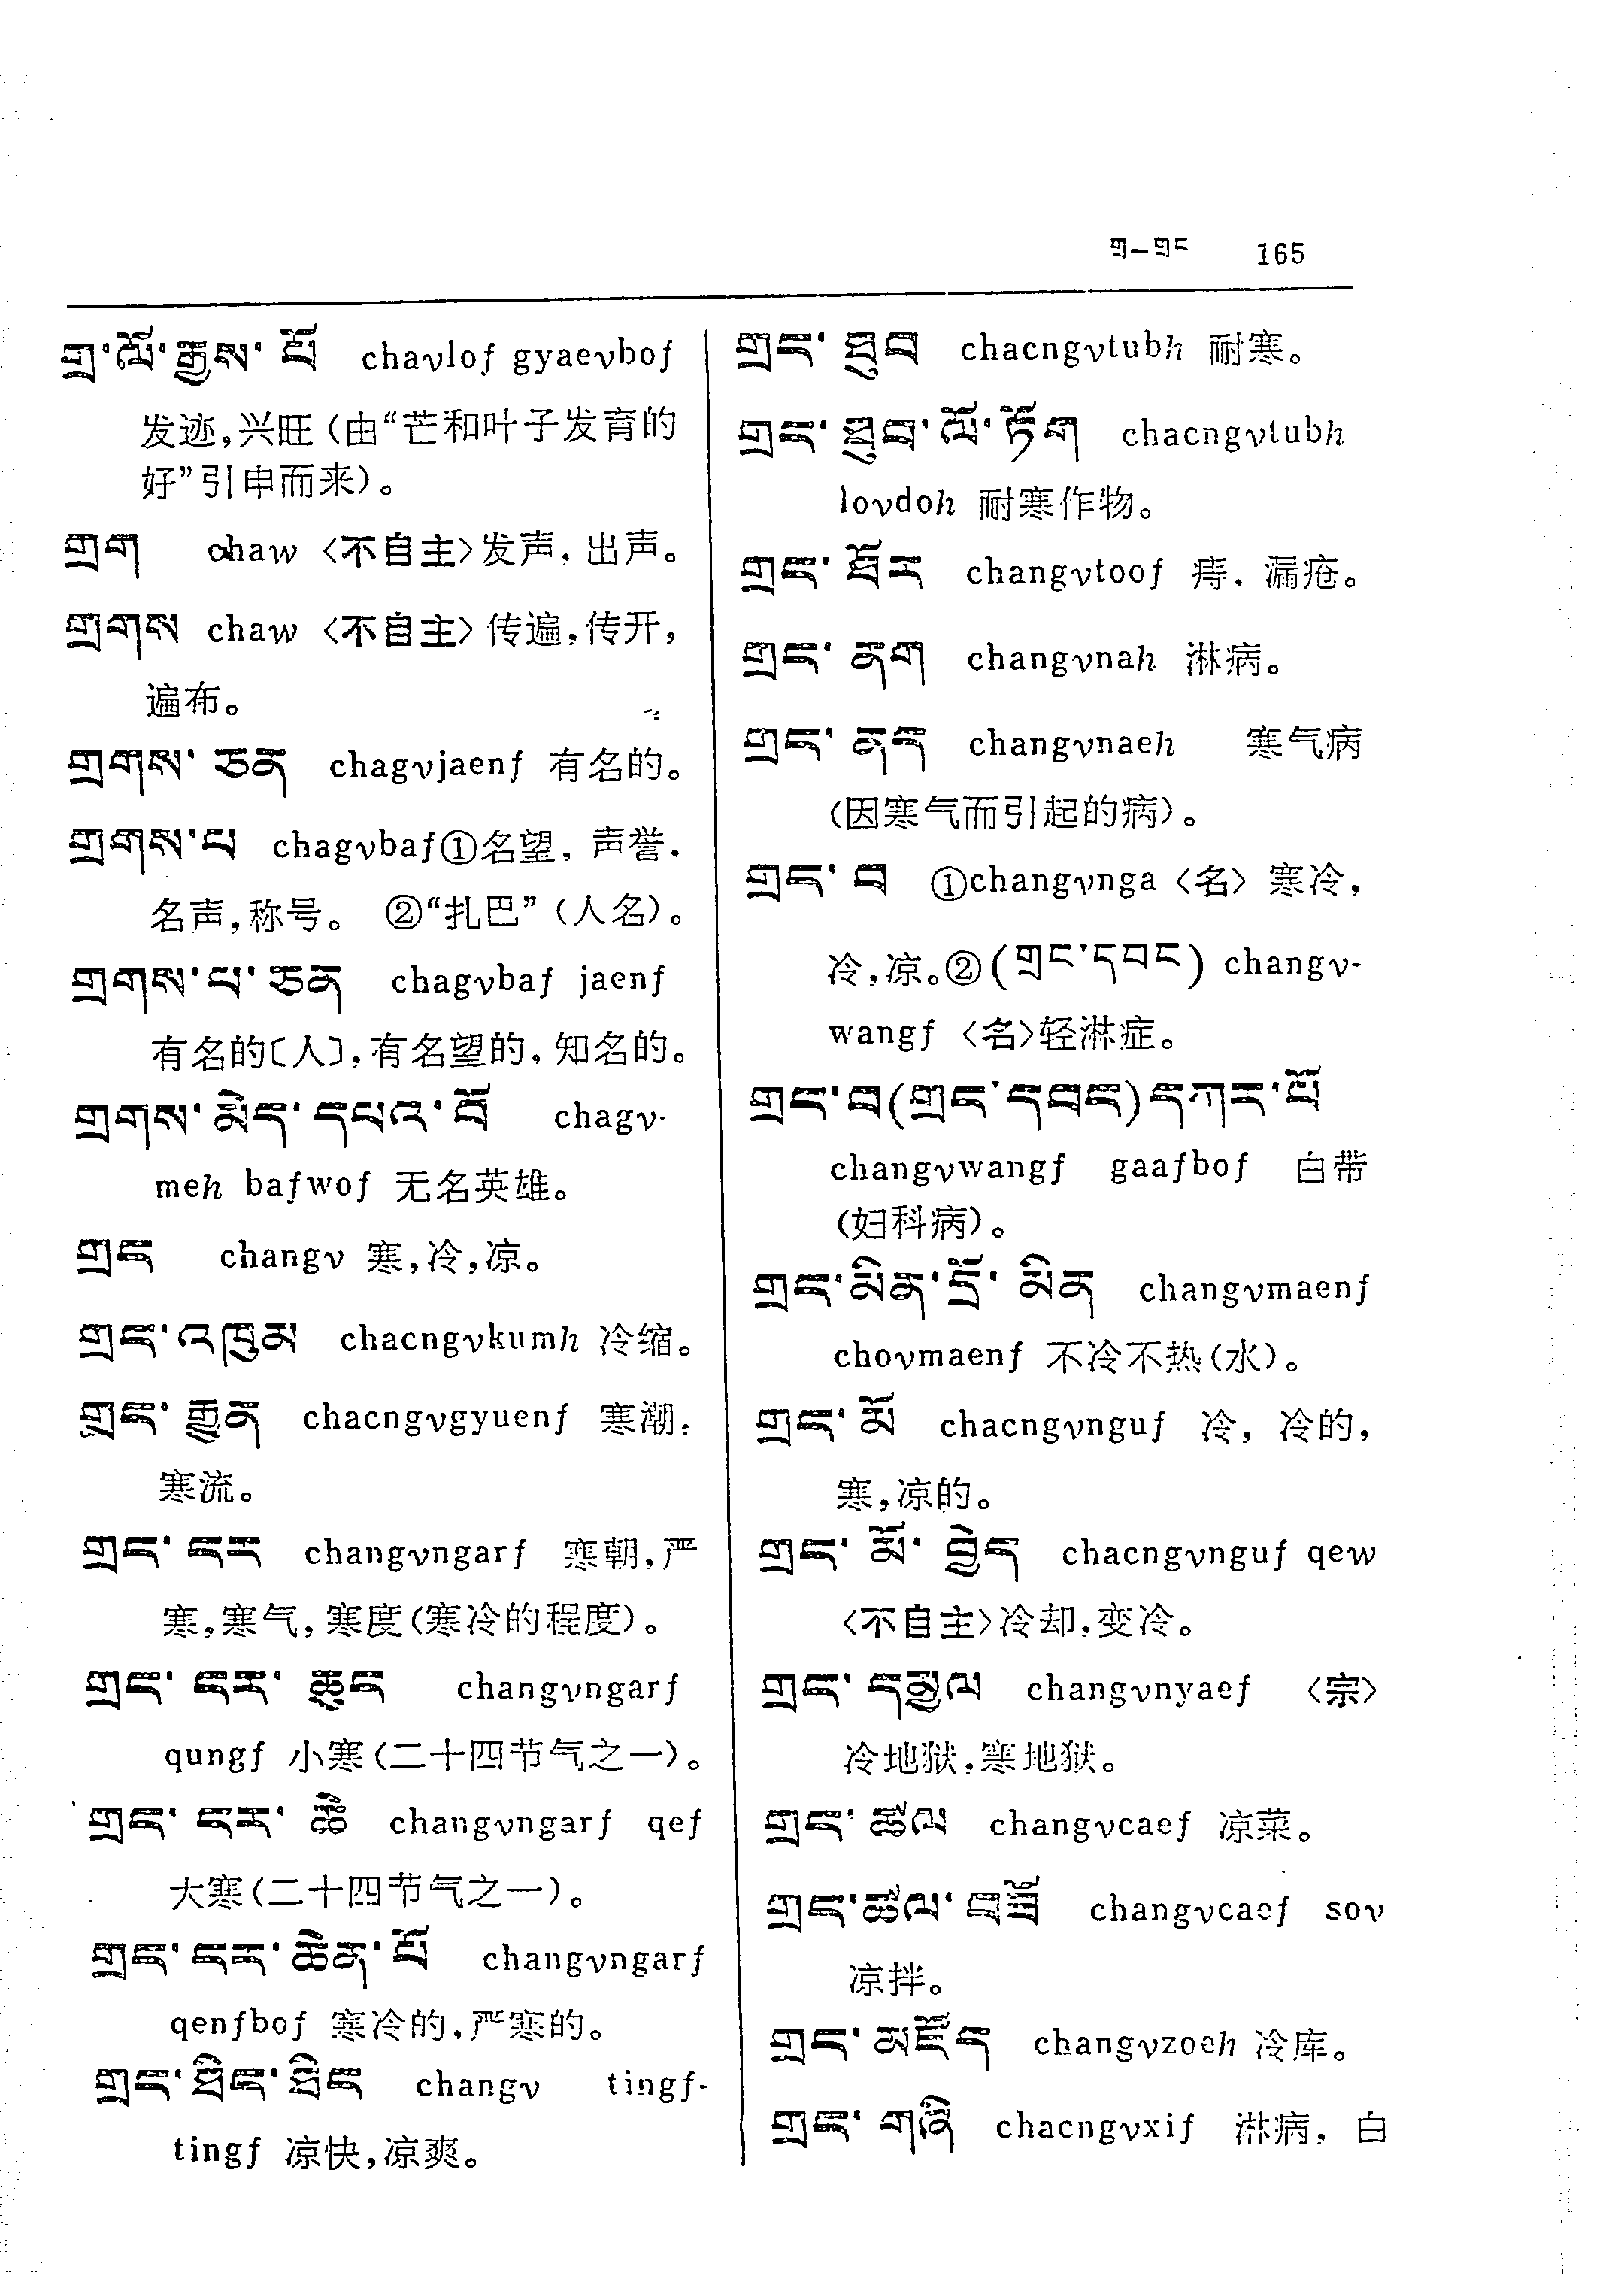 གྲ—གྲང 165
གྲ་ལོ་རྒྱས་པོ chavlof gyaevbof
发迹,兴旺(由“芒和叶子发育的
好”引申而来)。
གྲག chaw 〈不自主〉发声,出声。
གྲགས chaw 〈不自主〉传遍,传开,
遍布。
གྲགས་ཅན chagvjaenf 有名的。
གྲགས་པ chagvbaf①名望,声誉,
名声,称号。 ②“扎巴”(人名)。
གྲགས་པ་ཅན chagvbaf jaenf
有名的〔人〕,有名望的,知名的。
གྲགས་མེད་དཔའ་བོ chagv-
meh bafwof 无名英雄。
གྲང changv 寒,冷,凉。
གྲང་འཁུམ chacngvkumh 冷缩。
གྲང་རྒྱུན chacngvgyuenf 寒潮,
寒流。
གྲང་ངར changvngarf 寒朝,严
寒,寒气,寒度(寒冷的程度)。
གྲང་ངར་ཆུང changvngarf
qungf 小寒(二十四节气之一)。
གྲང་ངར་ཆེ changvngarf qef
大寒(二十四节气之一)。
གྲང་ངར་ཆེན་པོ changvngarf
qenfbof 寒冷的,严寒的。
གྲང་ཐིང་ཐིང changv tingf-
tingf 凉快,凉爽。
གྲང་ཐུབ chacngvtubh 耐寒。
གྲང་ཐུབ་ལོ་ཏོག chacngvtubh
lovdoh 耐寒作物。
གྲང་ཐོར changvtoof 痔,漏疮。
གྲང་ནག changvnah 淋病。
གྲང་ནད changvnaeh 寒气病
(因寒气而引起的病)。
གྲང་བ ①changvnga〈名〉寒冷,
冷,凉。②(གྲང་དབང) changv-
wangf 〈名〉轻淋症。
གྲང་བ(གྲང་དབང)དཀར་པོ
changvwangf gaafbof 白带
(妇科病)。
གྲང་མིན་དྲོ་མིན changvmaenf
chovmaenf 不冷不热(水)。
གྲང་མོ chacngvnguf 冷, 冷的,
寒,凉的。
གྲང་མོ་བྱེད chacngvnguf qew
〈不自主〉冷却,变冷。
གྲང་དམྱལ changvnyaef 〈宗〉
冷地狱,寒地狱。
གྲང་ཚལ changvcaef 凉菜。
གྲང་ཚལ་བཟོ changvcaef sov
凉拌。
གྲང་མཛོད changvzoeh 冷库。
གྲང་གཞི chacngvxif 淋病, 白